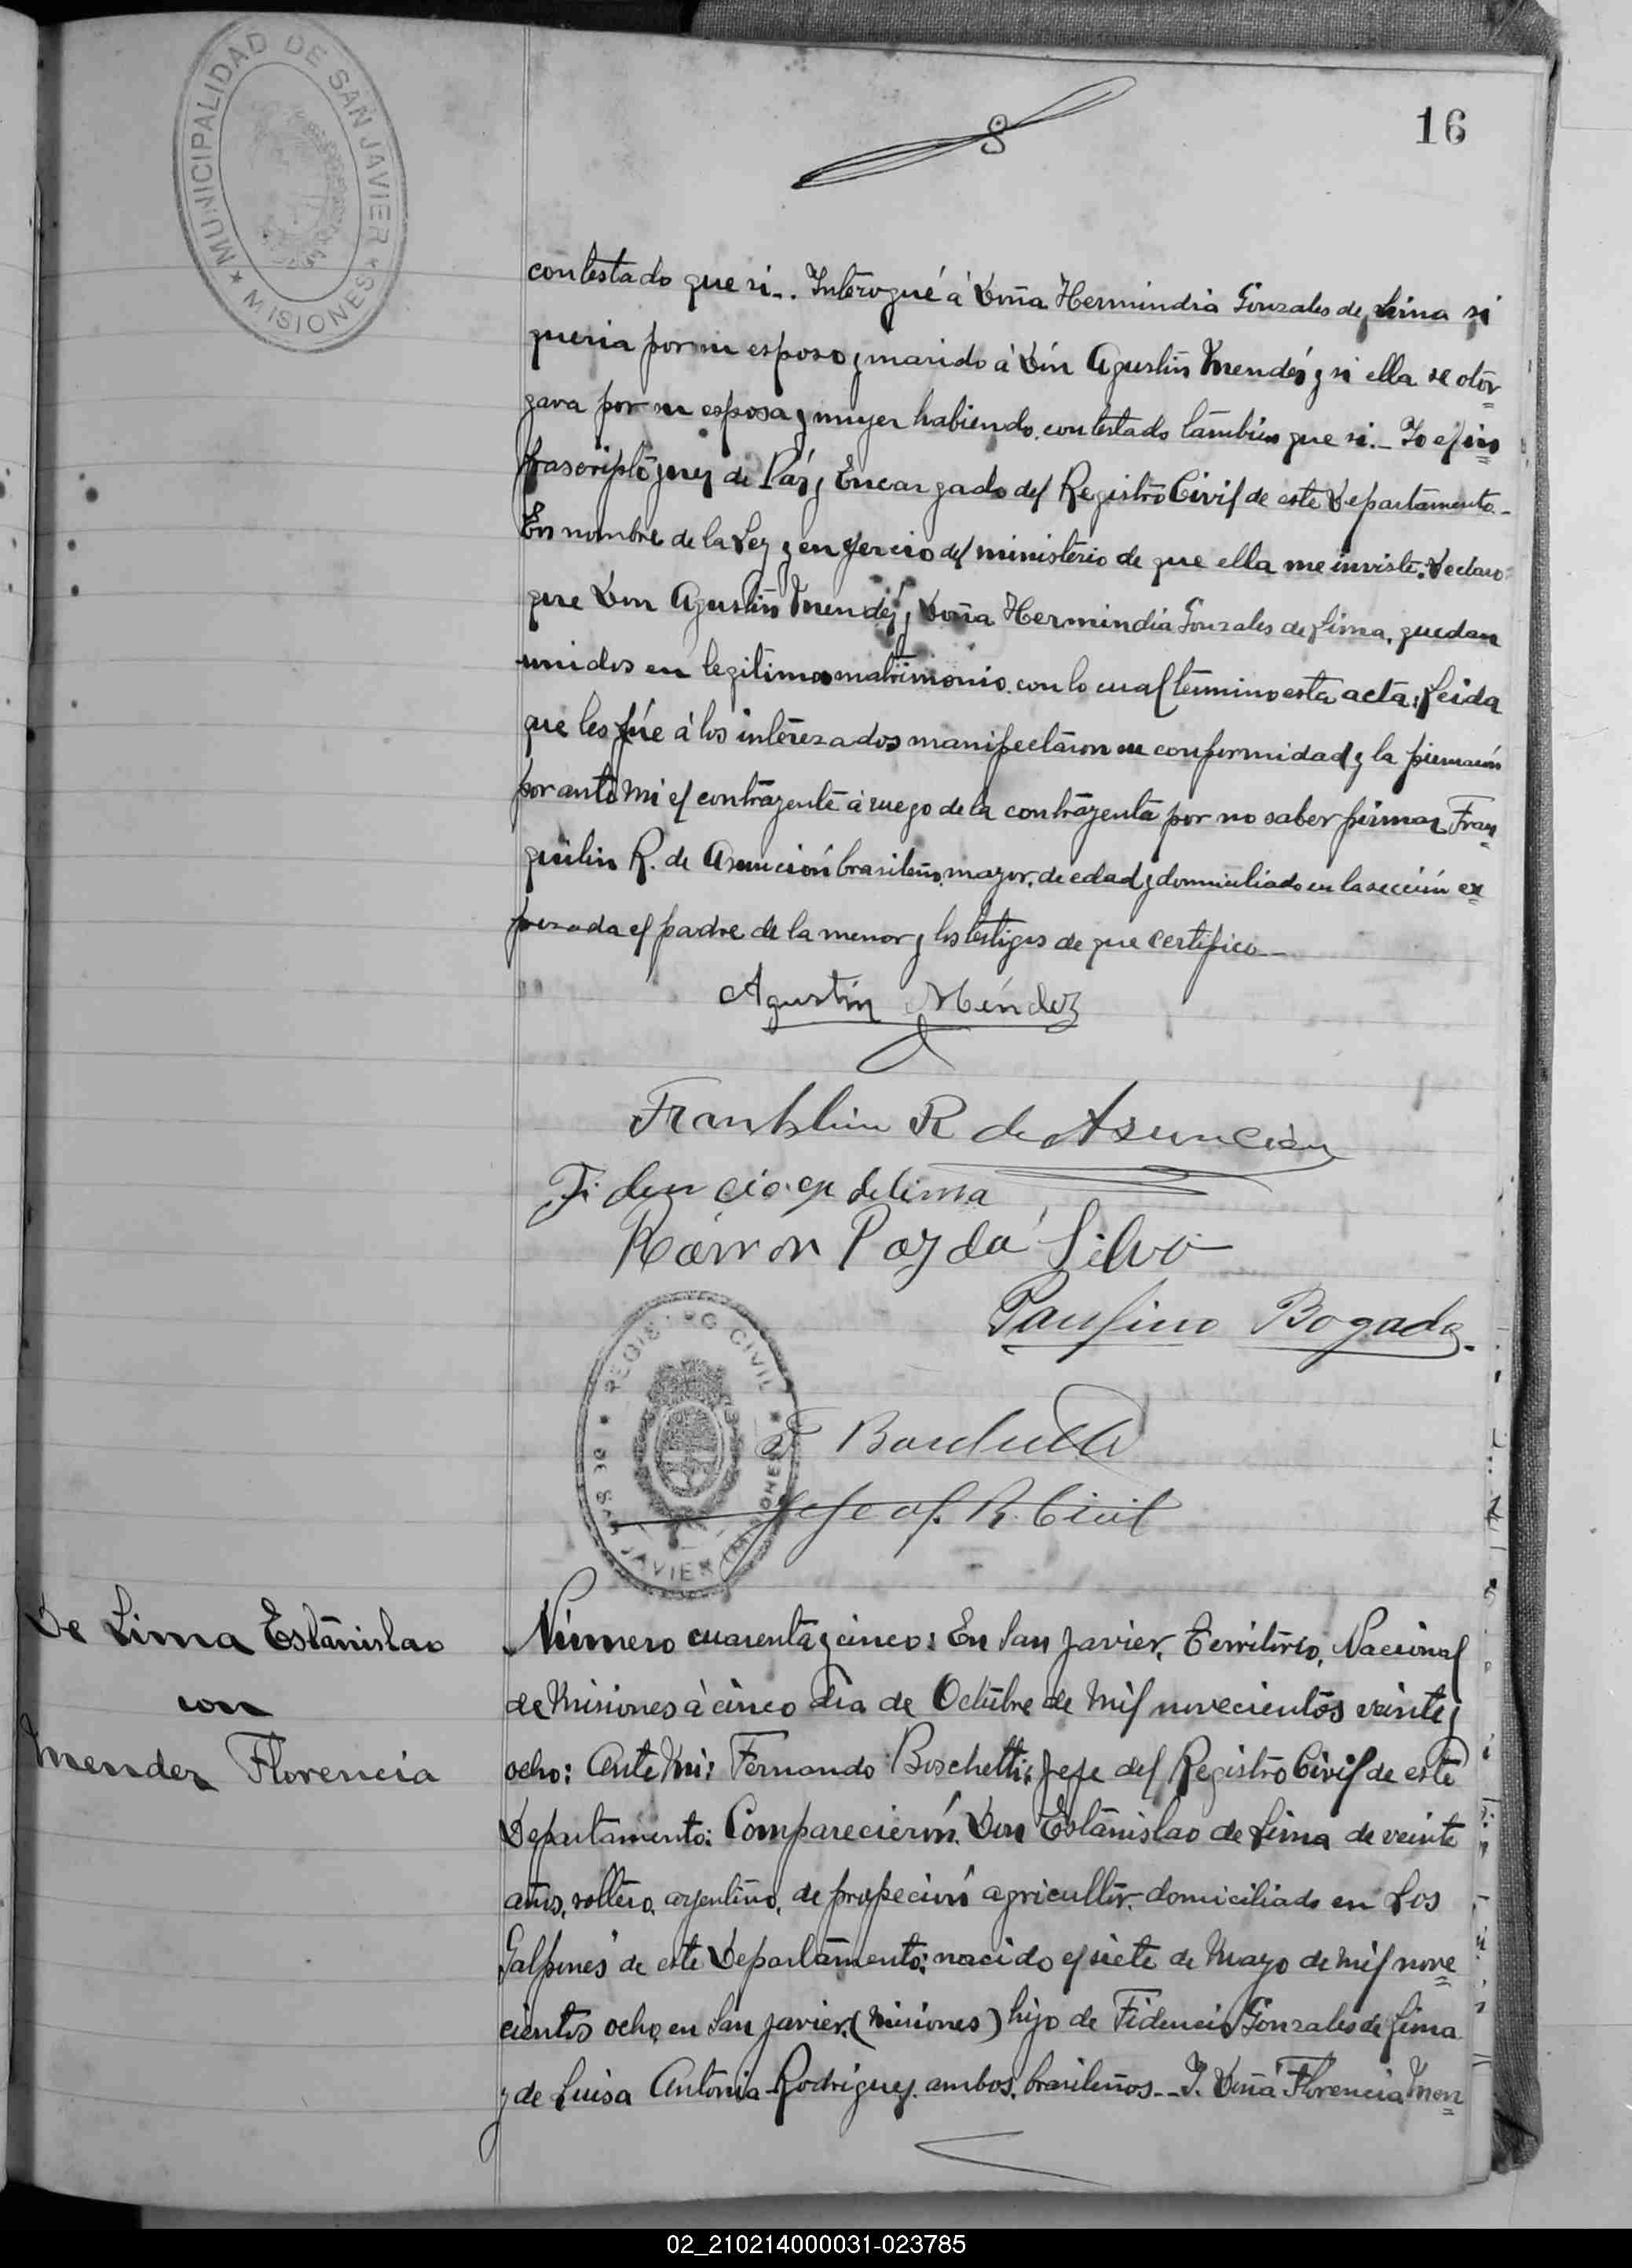 MUNICIPALIDAD DE SAN JAVIER
MISIONES
16
contestado que si.. Interogué á Doña Hermindia Gonzales de Lima si
queria por su esposo y marido á Dón Agustin Mendéz y si ella se otor=
gava por su esposa y muyer habiendo contestado también que si.- Yo el in=
frascripto juez de Páz y Encargado del Registro Civil de este Departamento.-
En nombre de la Ley y en ejercio del ministerio de que ella me inviste. Declaro:
que Don Agustin Mendéz y Doña Hermindia Gonzales de Lima, quedan
unidos en legitimo matrimonio con lo cual termino esta acta; Leida
que les fúe á los interezados manifectaron su conformidad y la firmarón
por anté Mi el contrayente á ruego de la contrayenta por no saber firmar Fran=
quilin R. de Asunción brasileño, mayor de edad y domiciliado en la sección ex=
presada el padre de la menor y los testigos de que certifico—
Agustín Méndez
Franklin R de Asunción
Fidencio g. delima
Rámon Pazda Silva
Paulino Bogado.
REGISTRO CIVIL
DE SAN JAVIER (MISIONES)
F Boschetti
Jefe of. R. Civil
De Lima Estanislao
con
Mendez Florencia
Número cuarenta y cinco: En San Javier, Territorio, Nacional
de Misiones á cinco dia de Octubre de Mil novecientos veinte y
ocho: Ante Mi: Fernando Boschetti; Jefe del Registro Civil de este
Departamento: Comparecierón. Don Estanislao de Lima de veinte
años, soltero, argentino, de profeción agricultor domiciliado en Los
Galpones de este Departamento; nacido el siete de Mayo de mil nove=
cientos ocho, en San Javier (Misiones) hijo de Fidencio Gonzales de Lima
y de Luisa Antonia Rodriguez ambos, brasileños.-- Y. Doña Florencia Men=
02_210214000031-023785